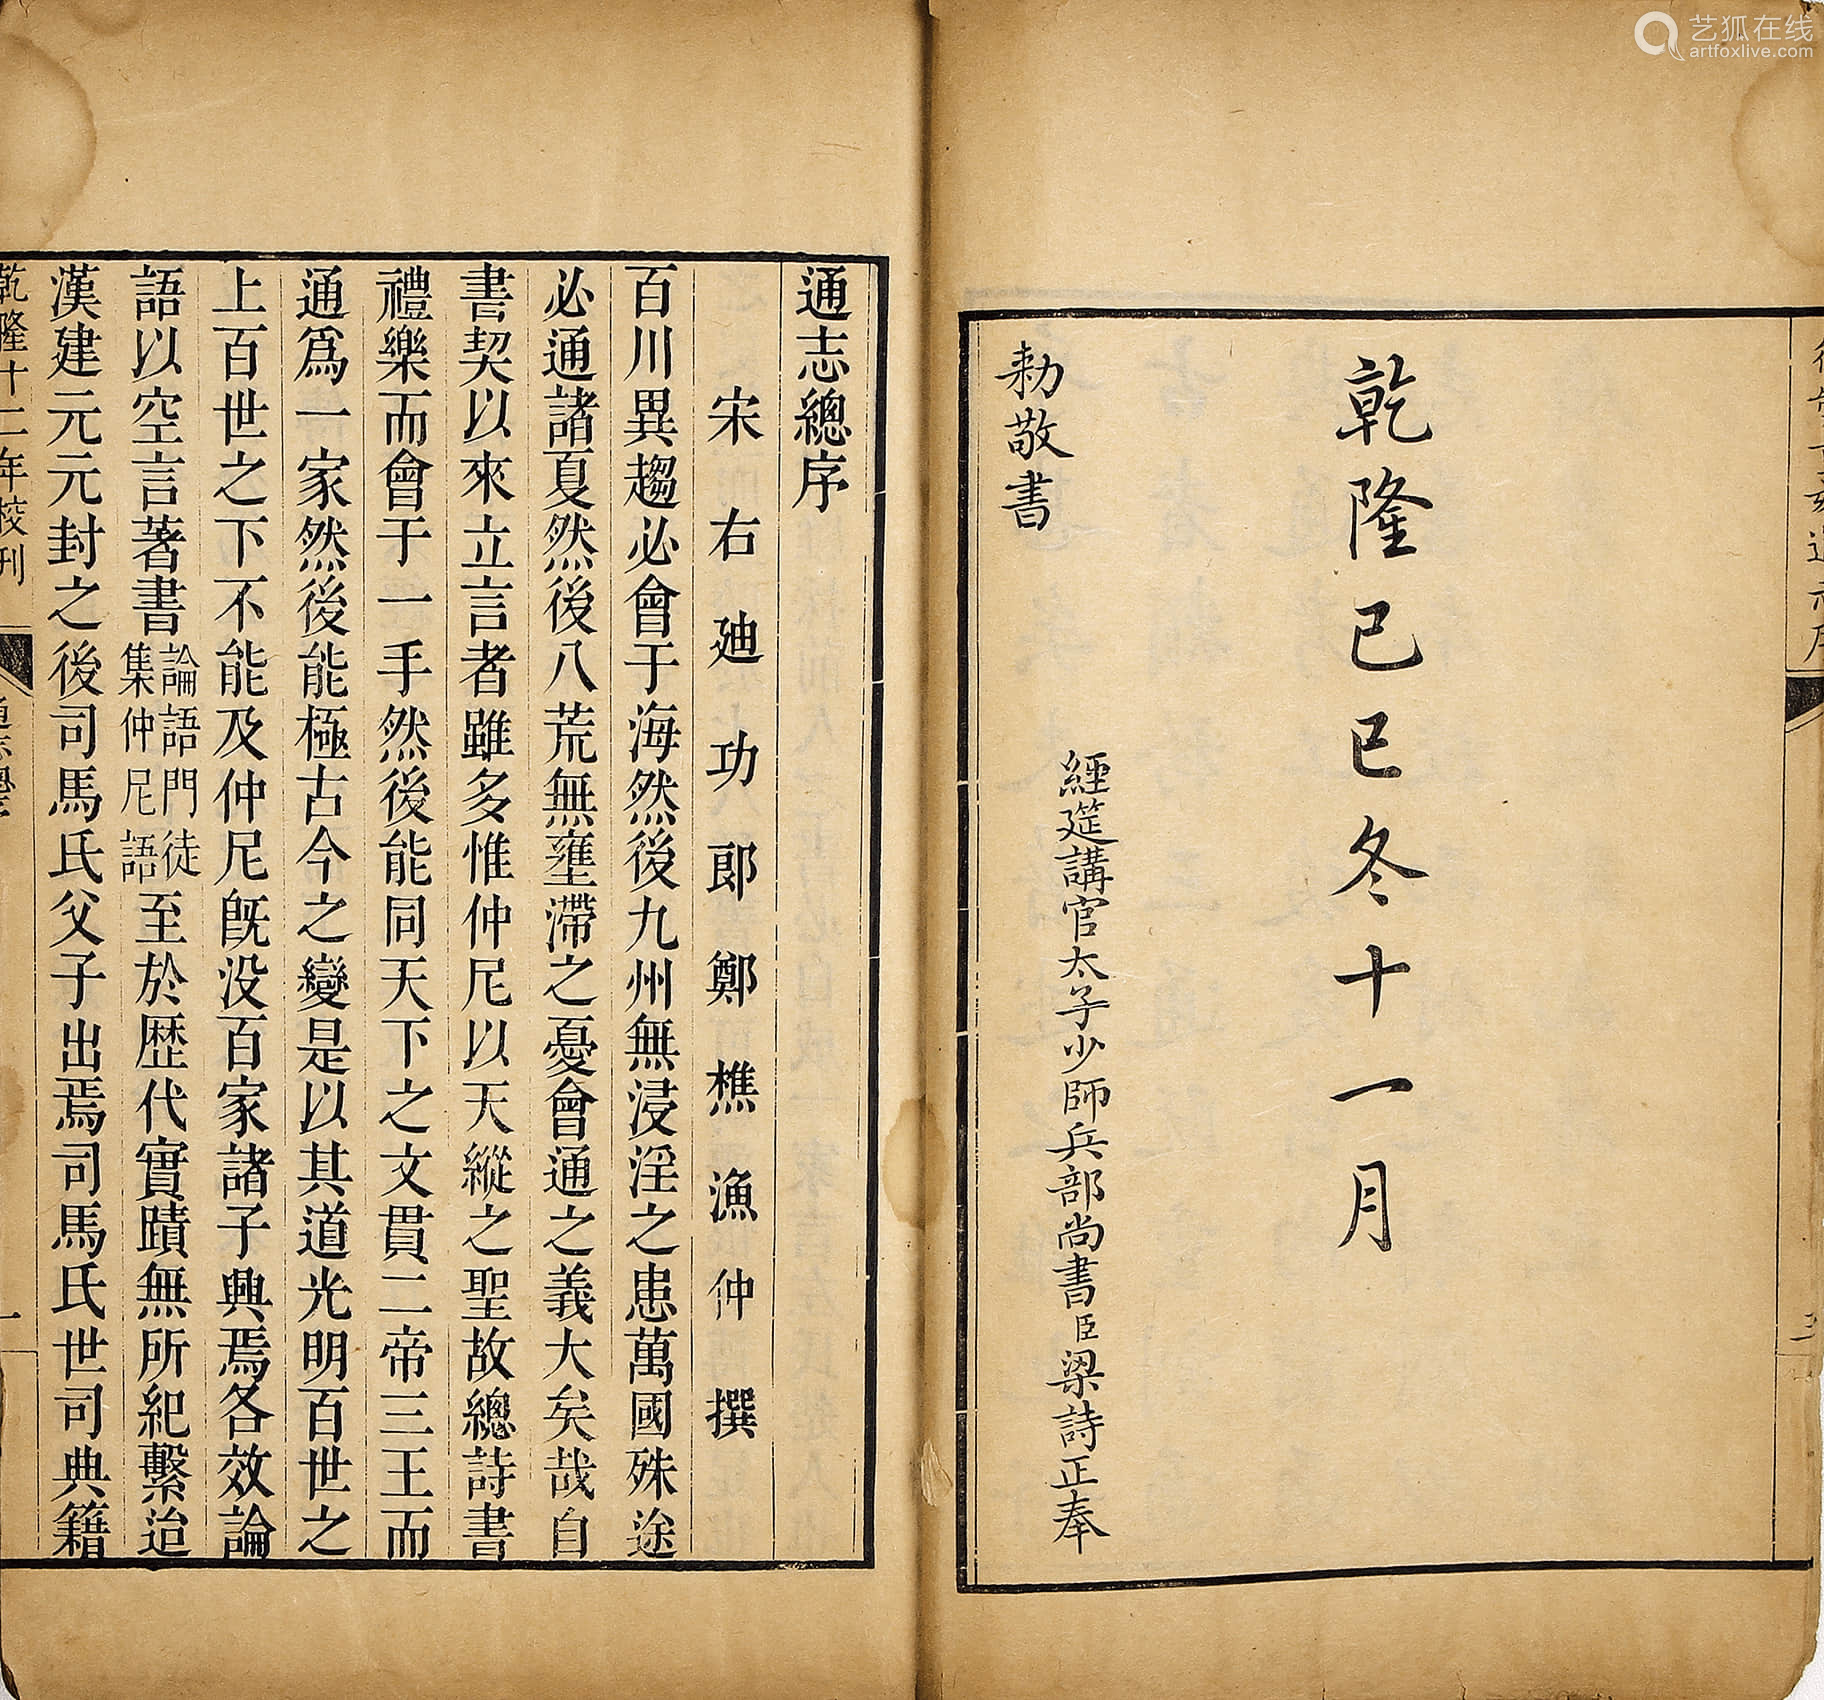 艺狐在线
artfoxlive.com
乾隆己巳冬十一月
經筵講官太子少師兵部尚書臣梁詩正奉
勅敬書
通志總序
宋右廸功郎鄭樵漁仲撰
百川異趨必會于海然後九州無浸淫之患萬國殊途
必通諸夏然後八荒無壅滯之憂會通之義大矣哉自
書契以來立言者雖多惟仲尼以天縱之聖故總詩書
禮樂而會于一手然後能同天下之文貫二帝三王而
通爲一家然後能極古今之變是以其道光明百世之
上百世之下不能及仲尼旣没百家諸子興焉各效論
語以空言著書論語門徒集仲尼語至於歴代實蹟無所紀繫迨
漢建元元封之後司馬氏父子出焉司馬氏世司典籍
乾隆十二年校刊
通志總序
一